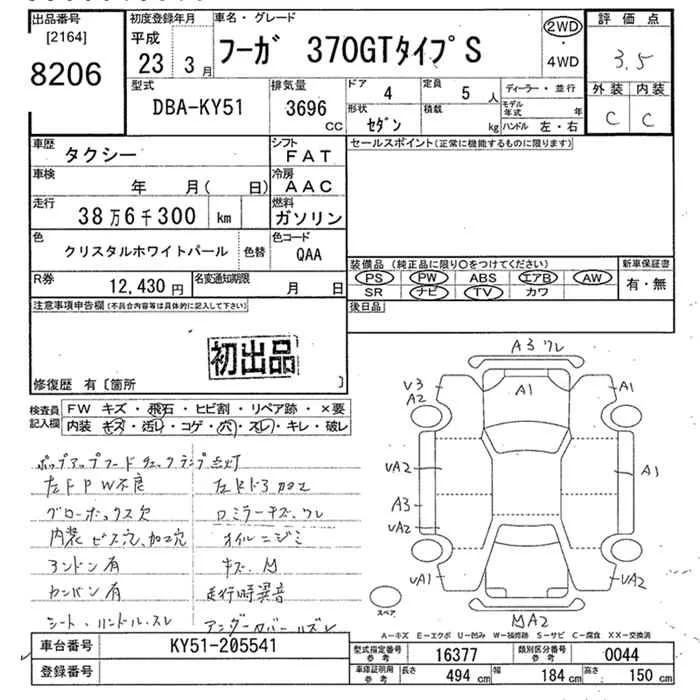 出品番号
[2164]
8206
初度登録年月
平成
23 3月
車名・グレード
フーガ 370GTタイプS
2WD
・
4WD
評価点
3.5
外装 内装
C C
型式
DBA-KY51
排気量
3696
CC
ドア 4
定員 5人
ディーラー・並行
形状
セダン
積載
kg
モデル年式 年
ハンドル 左・右
車歴
タクシー
シフト
FAT
セールスポイント(正常に機能するものに限ります)
車検
年 月( 日)
冷房
AAC
走行
38万6千300 km
燃料
ガソリン
色
クリスタルホワイトパール
色替
色コード
QAA
装備品 (純正品に限り〇をつけてください)
PS PW ABS エアB AW
SR ナビ TV カワ
新車保証書
有・無
R券
12,430円
名変通知期限
月 日
後日品
注意事項申告欄(不具合内容等は具体的に記入して下さい)
初出品
修復歴 有〔箇所 〕
検査員
記入欄
FW キズ・飛石・ヒビ割・リペア跡・×要
内装 キズ・汚レ・コゲ・穴・スレ・キレ・破レ
ポップアップフードチェックランプ点灯
左FPW不良
グローボックス欠
ロミラーキズ、ワレ
内装ビス穴、加工穴
オイルニジミ
アンドン有
キズ、M
カンバン有
走行時異音
シート、ハンドル、スレ
A3ワレ
V3
A2
A1
A1
UA2
A3
UA2
A1
UA1
UA2
スペア
MA2
A-キズ E-エクボ U-凹み W-補修跡 S-サビ C-腐食 XX-交換済
車台番号
KY51-205541
登録番号
型式指定番号
参考
16377
類別区分番号
参考
0044
車庫証明用
参考
長さ 494 cm
幅 184 cm
高さ 150 cm